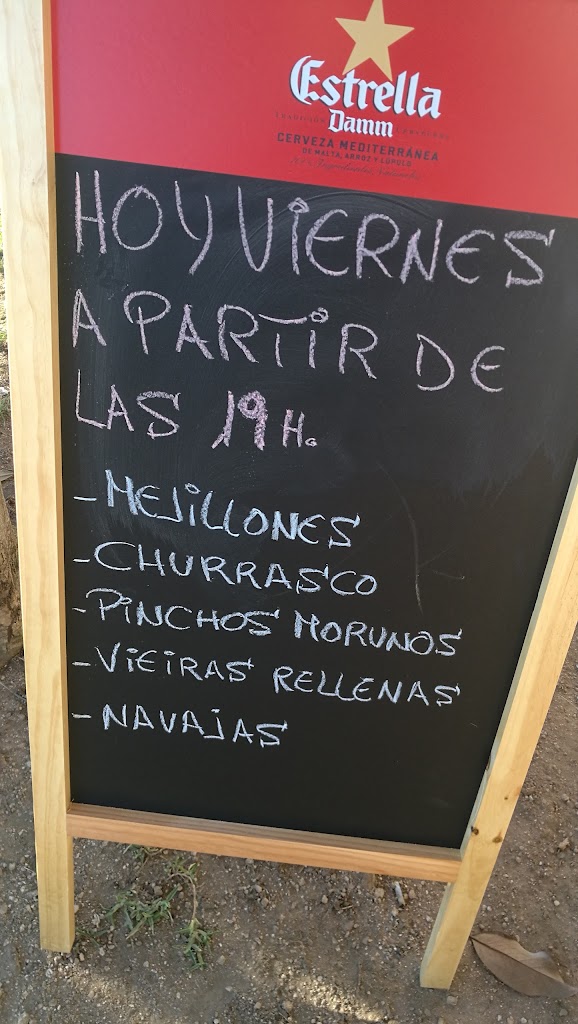 Estrella
Damm
CERVEZA MEDITERRÁNEA
DE MALTA, ARROZ Y LÚPULO
HOY VIERNES
A PARTIR DE
LAS 19 H.
- MEJILLONES
- CHURRASCO
- PINCHOS MORUNOS
- VIEIRAS RELLENAS
- NAVAJAS